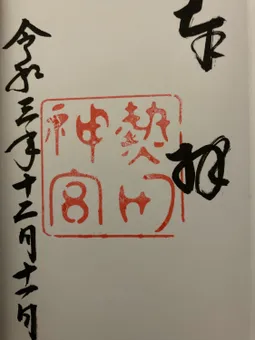 奉拝
熱田神宮
令和三年十二月十一日